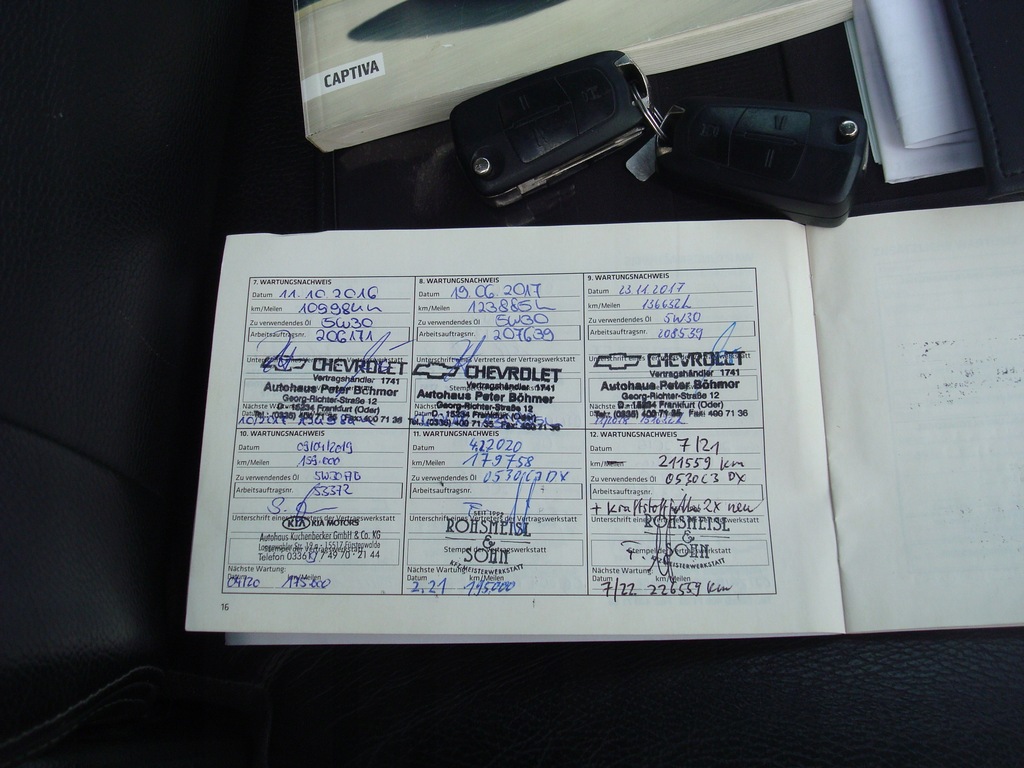 CAPTIVA
7. WARTUNGSNACHWEIS
Datum 11.10.2016
km/Meilen 109984
Zu verwendendes Öl 5W30
Arbeitsauftragsnr. 206171
CHEVROLET
Vertragshändler 1741
Autohaus Peter Böhmer
Georg-Richter-Straße 12
D - 15234 Frankfurt (Oder)
Tel.: (0335) 400 71 35 Fax: 400 71 36
8. WARTUNGSNACHWEIS
Datum 19.06.2017
km/Meilen 123885
Zu verwendendes Öl 5W30
Arbeitsauftragsnr. 207639
CHEVROLET
Vertragshändler 1741
Autohaus Peter Böhmer
Georg-Richter-Straße 12
D - 15234 Frankfurt (Oder)
Tel. (0335) 400 71 35 Fax: 400 71 36
9. WARTUNGSNACHWEIS
Datum 23.11.2017
km/Meilen 136632
Zu verwendendes Öl 5W30
Arbeitsauftragsnr. 208539
CHEVROLET
Vertragshändler 1741
Autohaus Peter Böhmer
Georg-Richter-Straße 12
D - 15234 Frankfurt (Oder)
Tel.: (0335) 400 71 35 Fax: 400 71 36
10. WARTUNGSNACHWEIS
Datum 09/04/2019
km/Meilen 159.000
Zu verwendendes Öl 5W30
Arbeitsauftragsnr. 53372
Unterschrift eines Vertreters der Vertragswerkstatt
KIA KIA MOTORS
Autohaus Kuchenbecker GmbH & Co. KG
15517 Fürstenwalde
Stempel der Vertragswerkstatt
Telefon 03361 / 7 49 70 - 21 44
Nächste Wartung:
Datum km/Meilen
04/20 175.000
11. WARTUNGSNACHWEIS
Datum 4.2.2020
km/Meilen 179758
Zu verwendendes Öl 0530C3 DX
Arbeitsauftragsnr.
Unterschrift eines Vertreters der Vertragswerkstatt
SEIT 1992
ROHSMEISL
&
SOHN
KFZ-MEISTERWERKSTATT
Stempel der Vertragswerkstatt
Nächste Wartung:
Datum km/Meilen
2.21 195000
12. WARTUNGSNACHWEIS
Datum 7/21
km/Meilen 211559 km
Zu verwendendes Öl 0530C3 DX
Arbeitsauftragsnr.
+ Kraftstofffilter 2x neu
Unterschrift eines Vertreters der Vertragswerkstatt
ROHSMEISL
&
SOHN
MEISTERWERKSTATT
Stempel der Vertragswerkstatt
Nächste Wartung:
Datum km/Meilen
7/22 226559 km
16